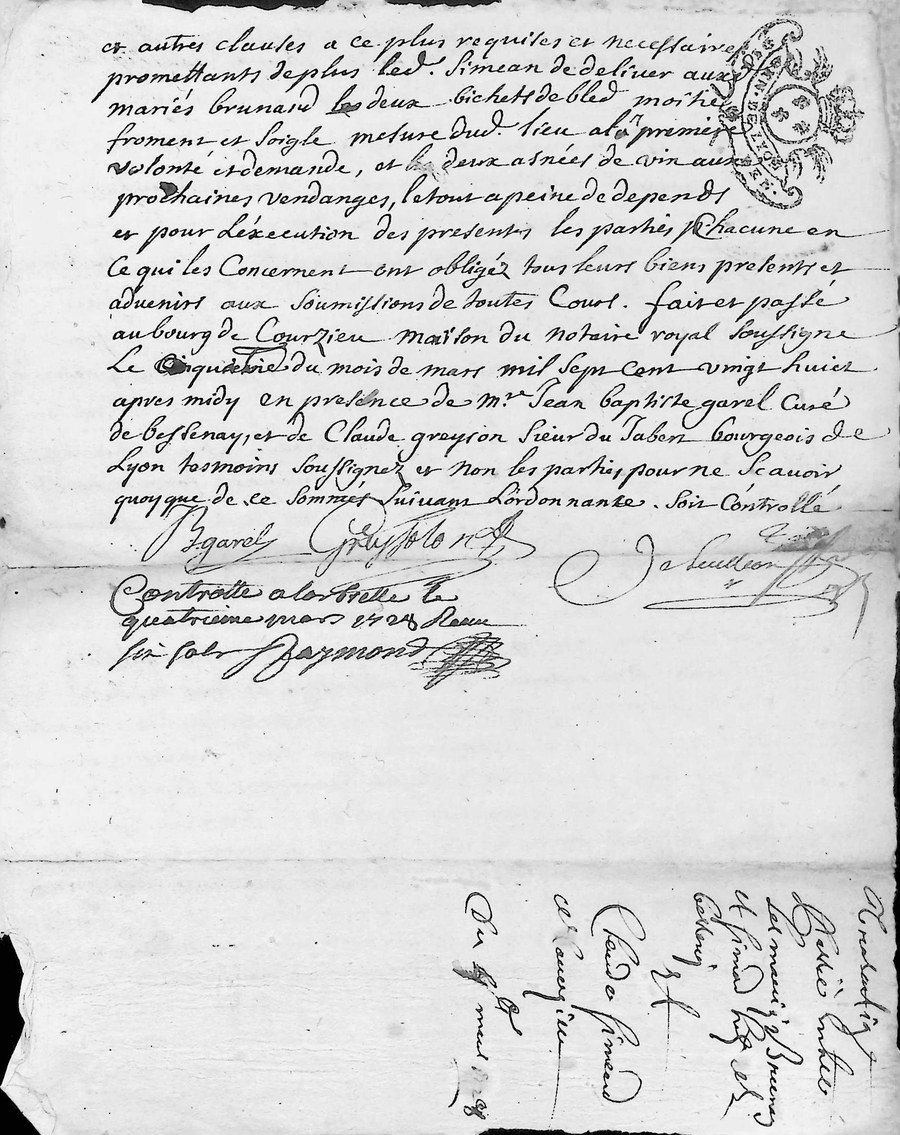 et autres clauses a ce plus requises et necessaire
promettants de plus led. Simean de deliver aux d.
mariés brunaud les deux bichets de bled moitie
froment et soigle mesure dud. lieu a la premiere
volonté et demande, et les deux asnées de vin aux
prochaines vendanges, le tout a peine de depends
et pour L'éxecution des presentes les parties Chacune en
Ce qui les Concernent ont obligéz tous leurs biens presents et
advenirs aux soumissions de toutes Cours. fait et passé
au bourg de Courzieu maison du notaire royal soussigne
Le Cinquieme du mois de mars mil sept cent vingt huict
apres midy en presence de mr. Jean baptiste garel Curé
de bessenay, et de Claude greyson sieur du Tabert bourgeois de
Lyon tesmoins soussignez et non les parties pour ne scavoir
quoyque de ce sommés suivant L'ordonnante. Soit Contrôllé
Bgarel
Controlle a larbrelle le
quatrieme mars 1728 Receu
six sols Raymond
Les mariez Brunaud
et simeand
bessenay
Claude simeand
Du mars 1728